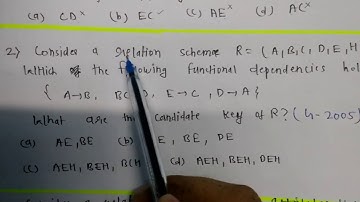 (a) CD× (b) EC✓ (c) AE× (d) AC×
2) Consider a relation scheme R = (A,B,C,D,E,H
which of the following functional dependencies hol
{ A→B, BC , E→C , D→A}
What are the candidate key of R? (4-2005)
(a) AE, BE (b) E, BE, DE
(c) AEH, BEH, BCH (d) AEH, BEH, DEH